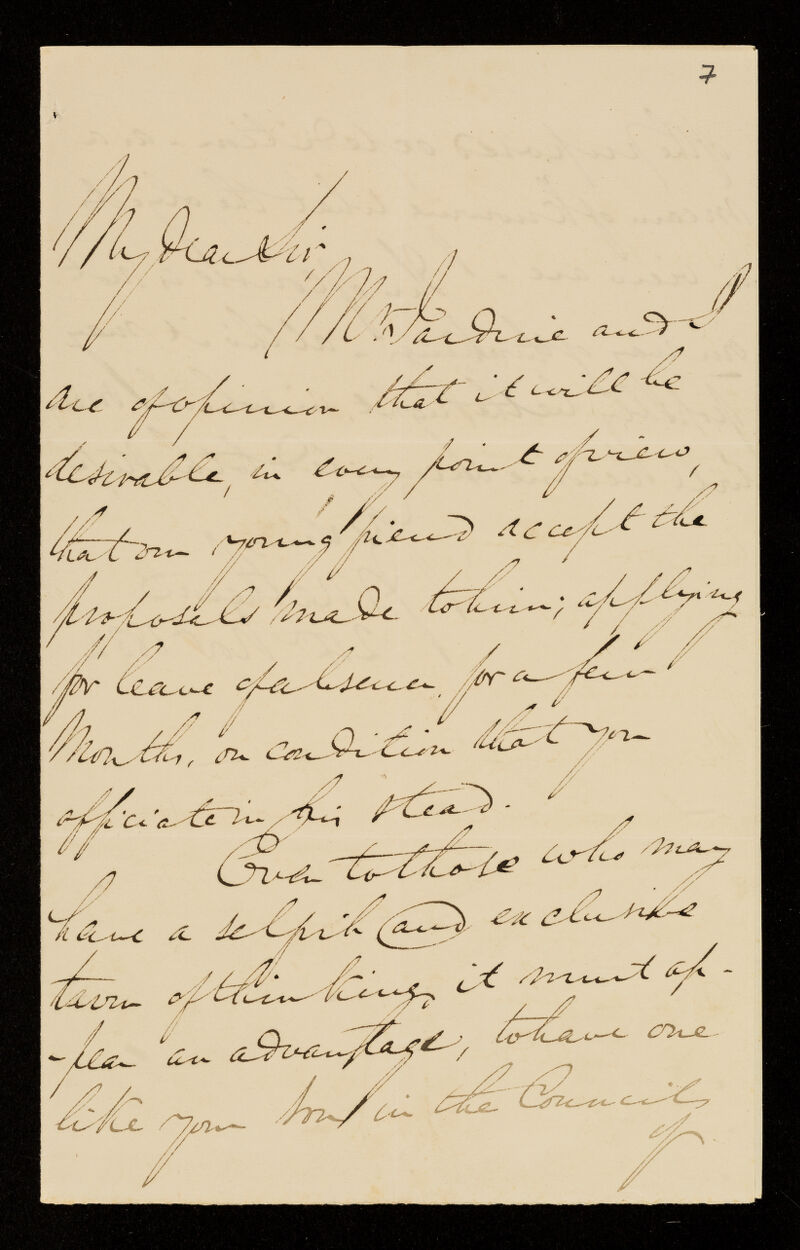 7
My dear Sir,
Mr. Jardine and I
are of opinion that it will be
desirable, in every point of view,
that our young friend accept the
proposals made to him; applying
for leave of absence, for a few
Months, on condition that you
officiate in his stead.
Even to those who may
have a selfish and exclusive
turn of thinking, it must ap-
-pear an advantage, to have one
like your son in the Councils
of